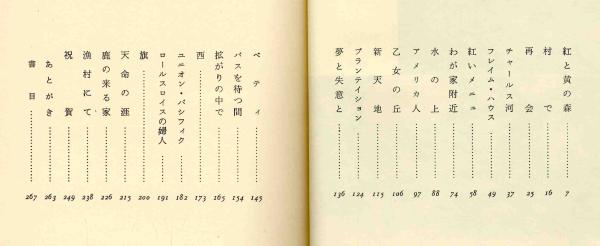 紅と黄の森 7
村で 16
再会 25
チャールス河 37
フレイム・ハウス 49
紅いメニュ 58
わが家附近 74
水の上 88
アメリカ人 97
乙女の丘 106
新天地 115
プランテイション 124
夢と失意と 136
ベティ 145
バスを待つ間 154
拡がりの中で 165
西 173
ユニオン・パシフィク 182
ロールスロイスの婦人 191
旗 200
天命の涯 215
鹿の来る家 226
漁村にて 238
祝賀 249
あとがき 263
書目 267